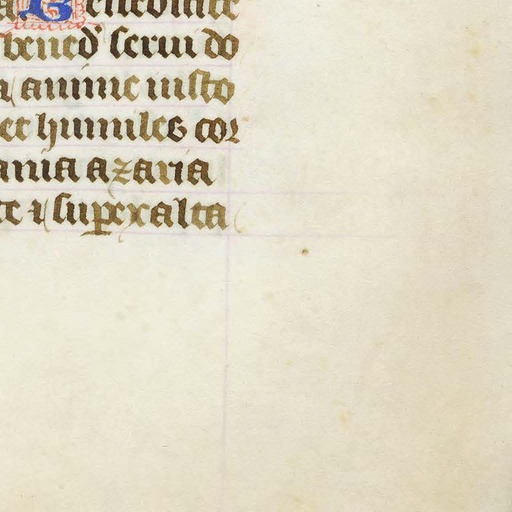 a Benedicite
bened serui do
a anime iusto
et humiles cor
ania azaria
te ⁊ superexalta